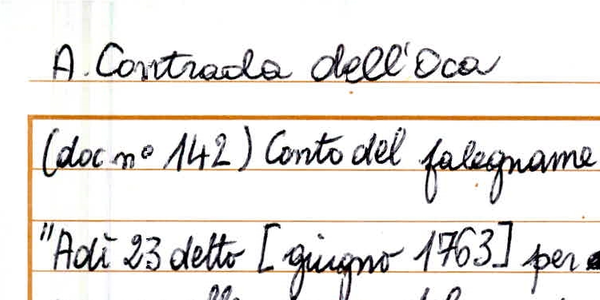 A. Contrada dell'Oca
(doc nº 142) Conto del falegname
"Adì 23 detto [giugno 1763] per